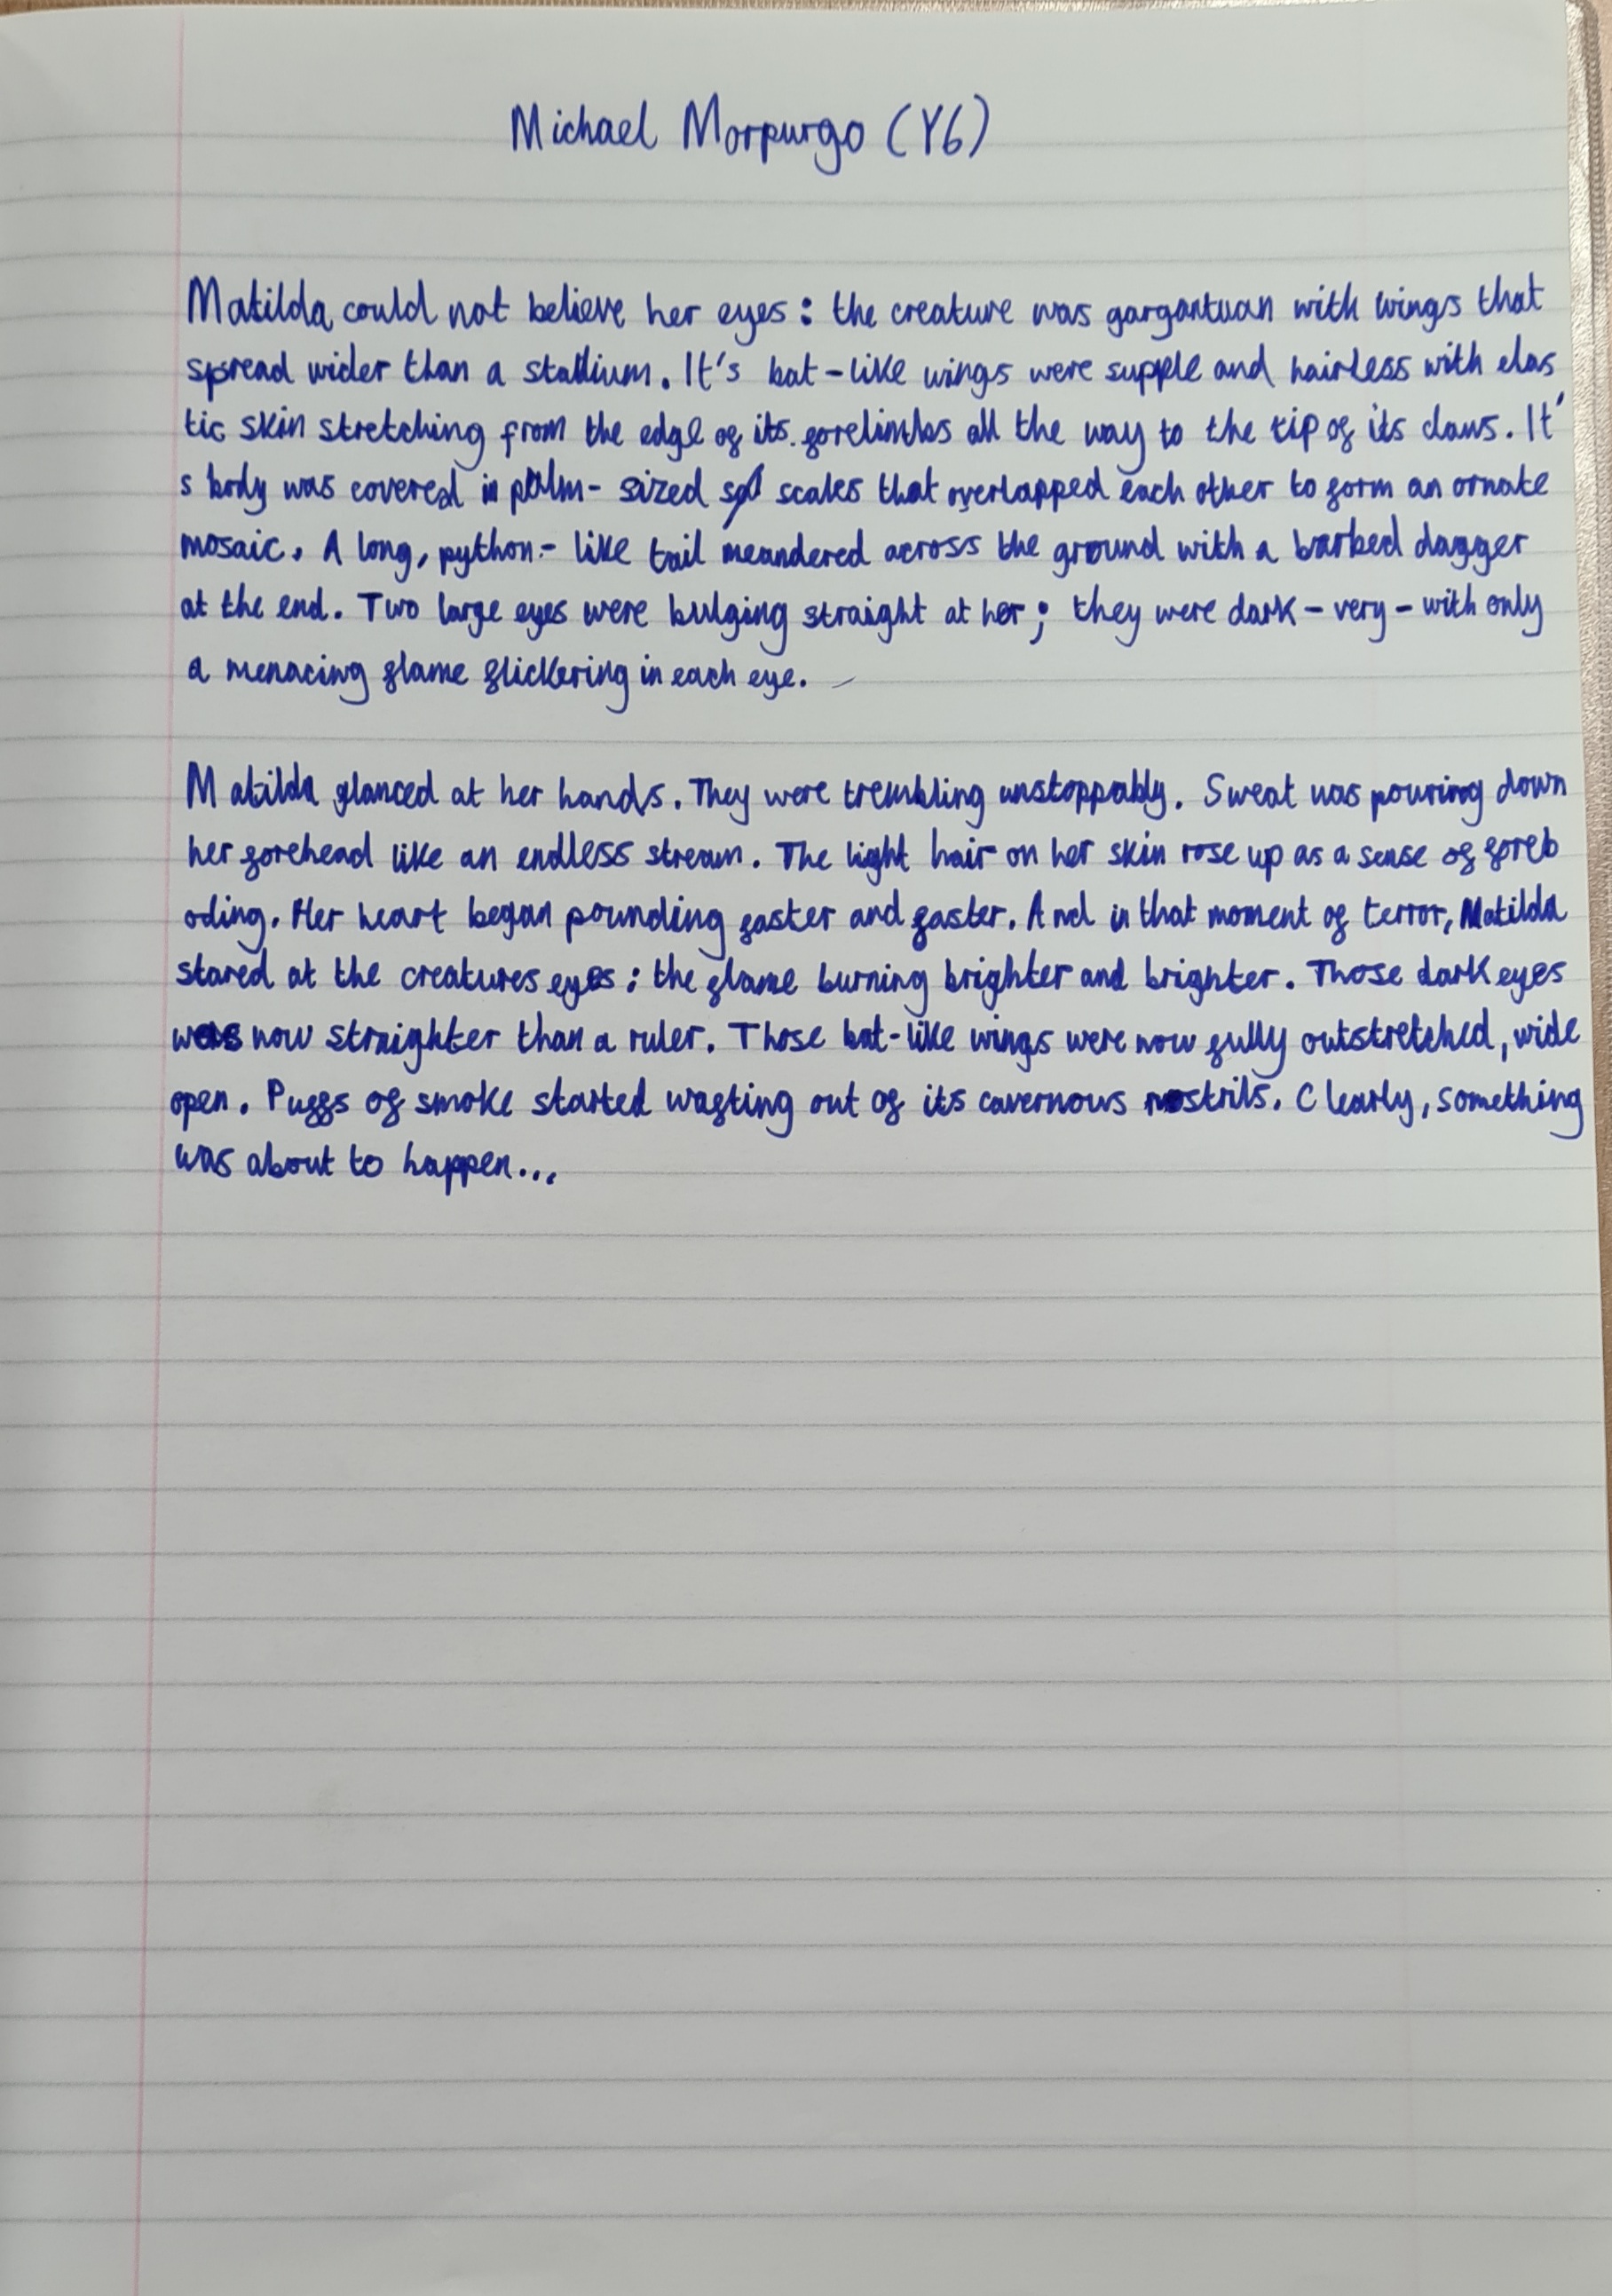 Michael Morpurgo (Y6)
Matilda could not believe her eyes : the creature was gargantuan with wings that
spread wider than a stadium. It's bat-like wings were supple and hairless with elas
tic skin stretching from the edge of its forelimbs all the way to the tip of its claws. It'
s body was covered in palm-sized scales that overlapped each other to form an ornate
mosaic. A long, python-like tail meandered across the ground with a barbed dagger
at the end. Two large eyes were bulging straight at her ; they were dark - very - with only
a menacing flame flickering in each eye.
Matilda glanced at her hands. They were trembling unstoppably. Sweat was pouring down
her forehead like an endless stream. The light hair on her skin rose up as a sense of foreb
oding. Her heart began pounding faster and faster. And in that moment of terror, Matilda
stared at the creatures eyes : the flame burning brighter and brighter. Those dark eyes
now straighter than a ruler. Those bat-like wings were now fully outstretched, wide
open. Puffs of smoke started wafting out of its cavernous nostrils. Clearly, something
was about to happen...